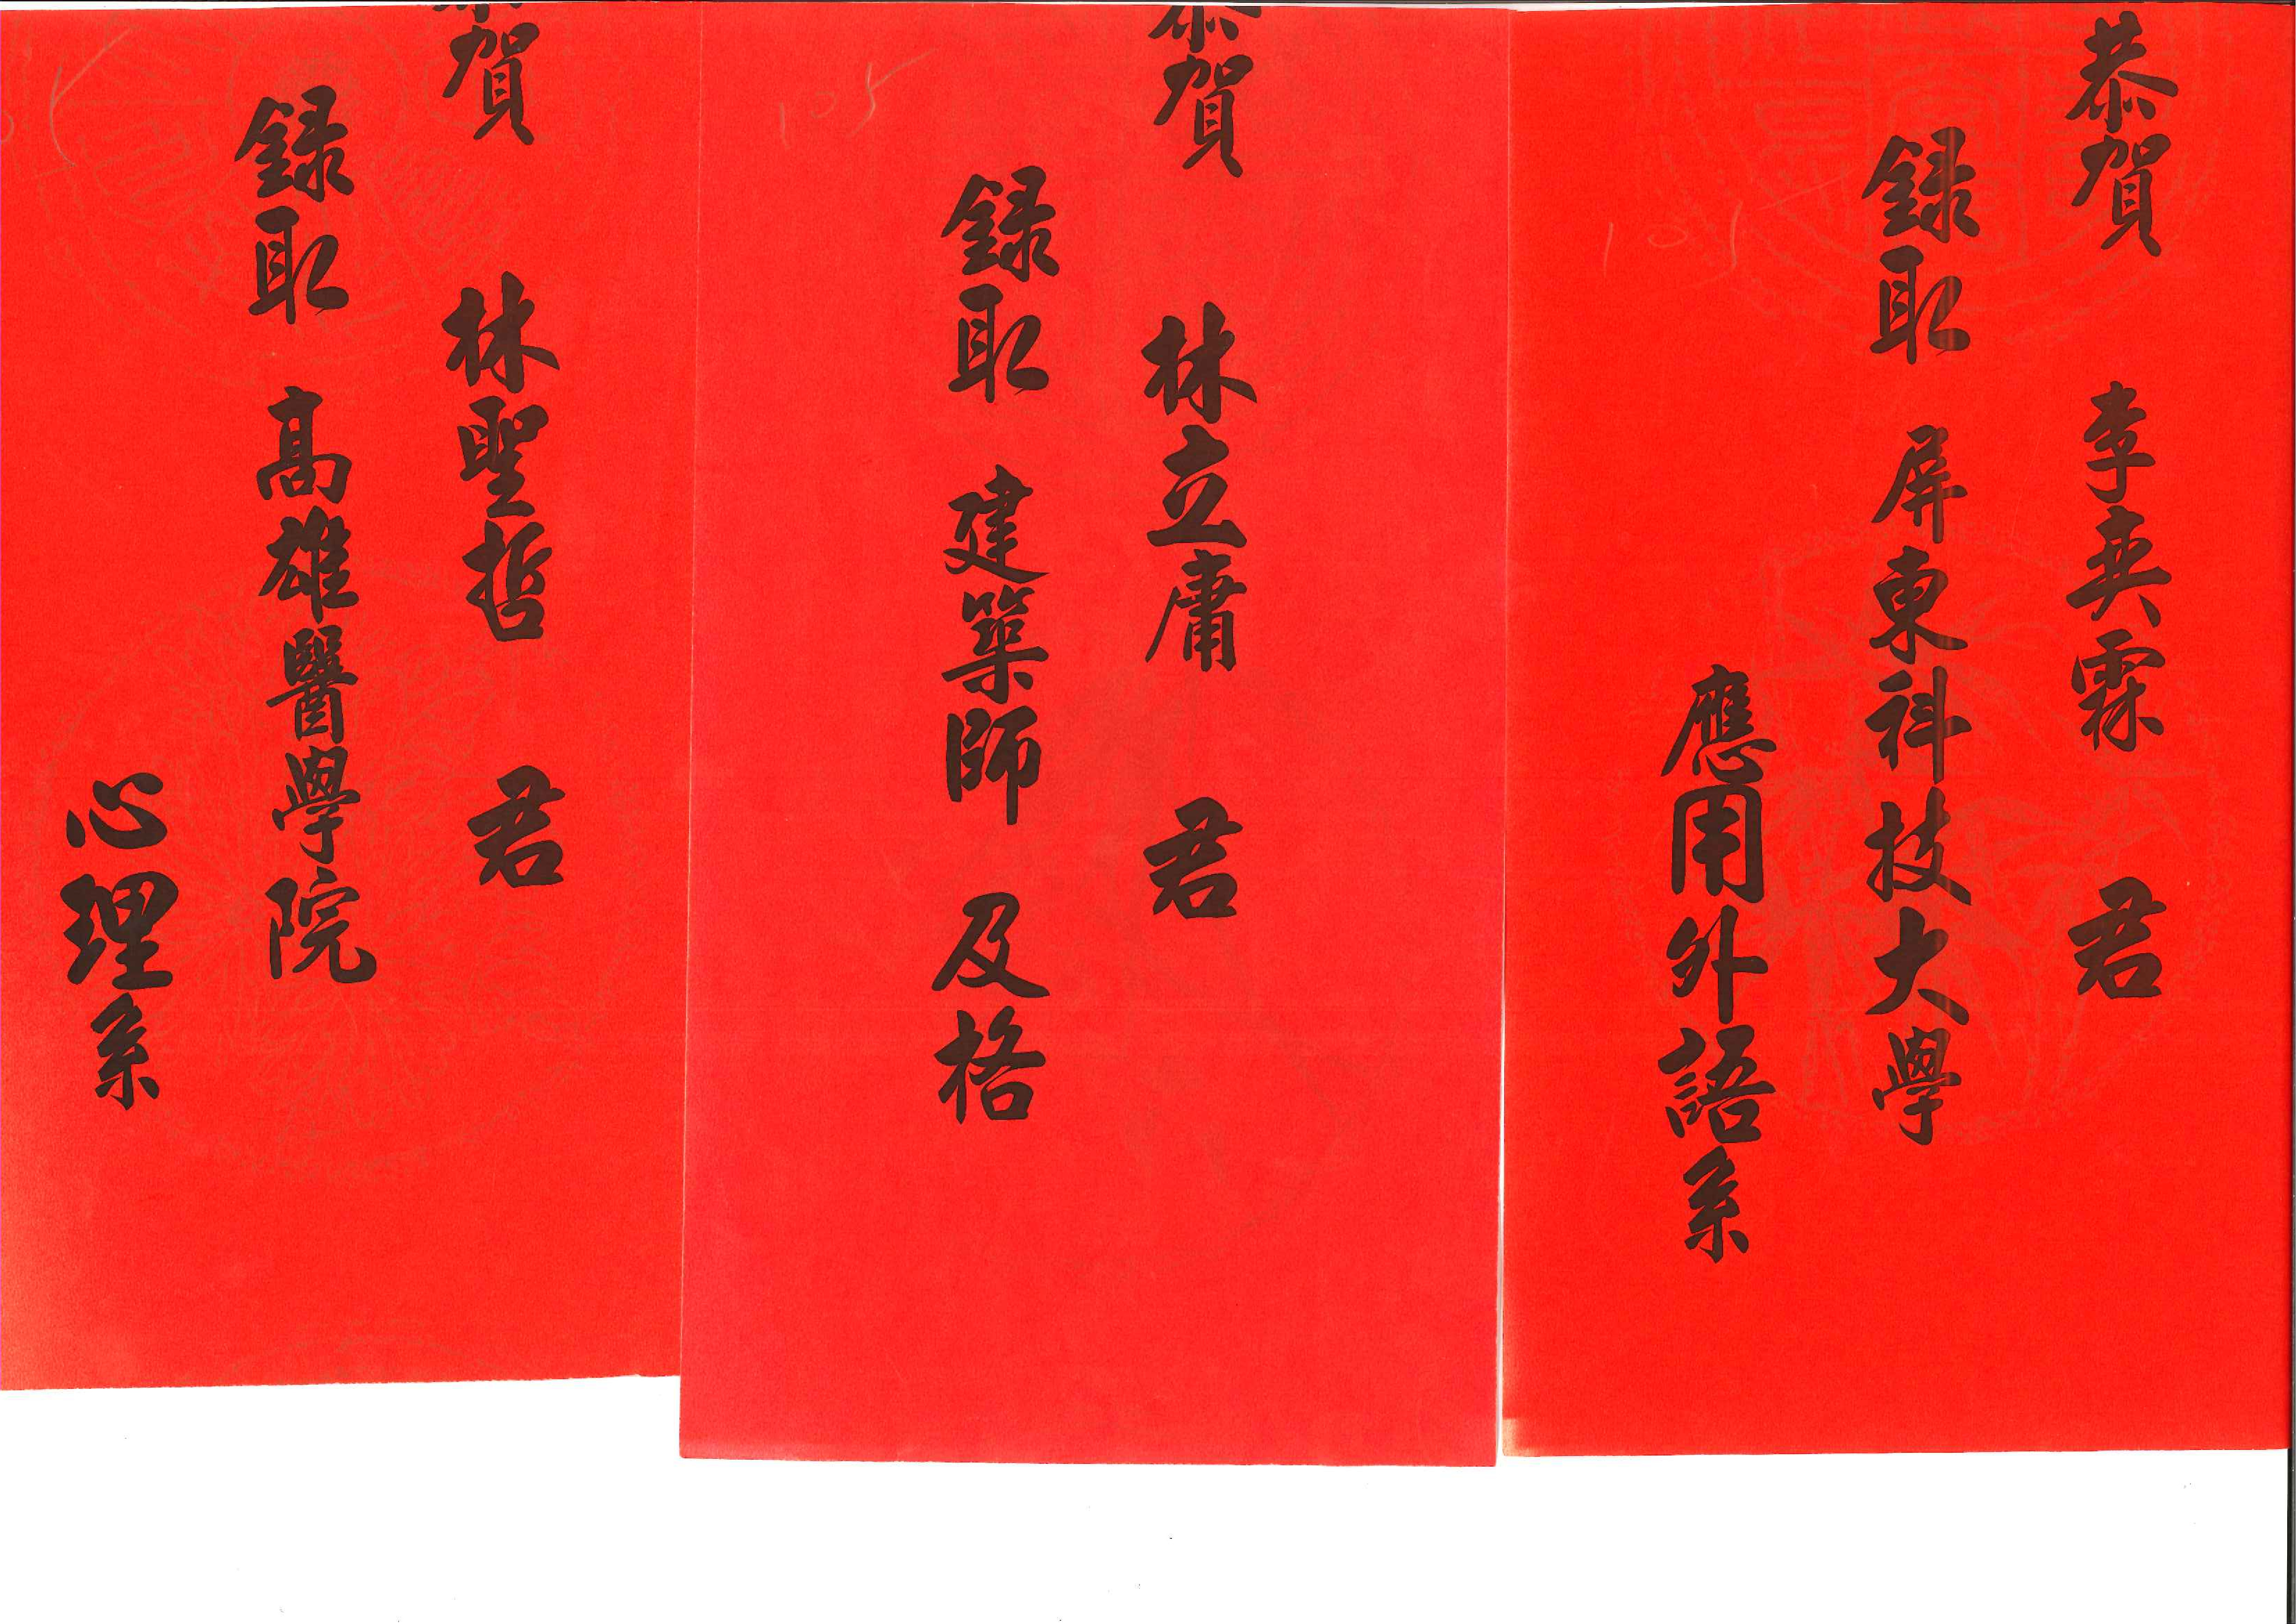 恭賀 李奕霖 君
錄取 屏東科技大學
應用外語系
105
恭賀 林立庸 君
錄取 建築師 及格
105
恭賀 林聖哲 君
錄取 高雄醫學院
心理系